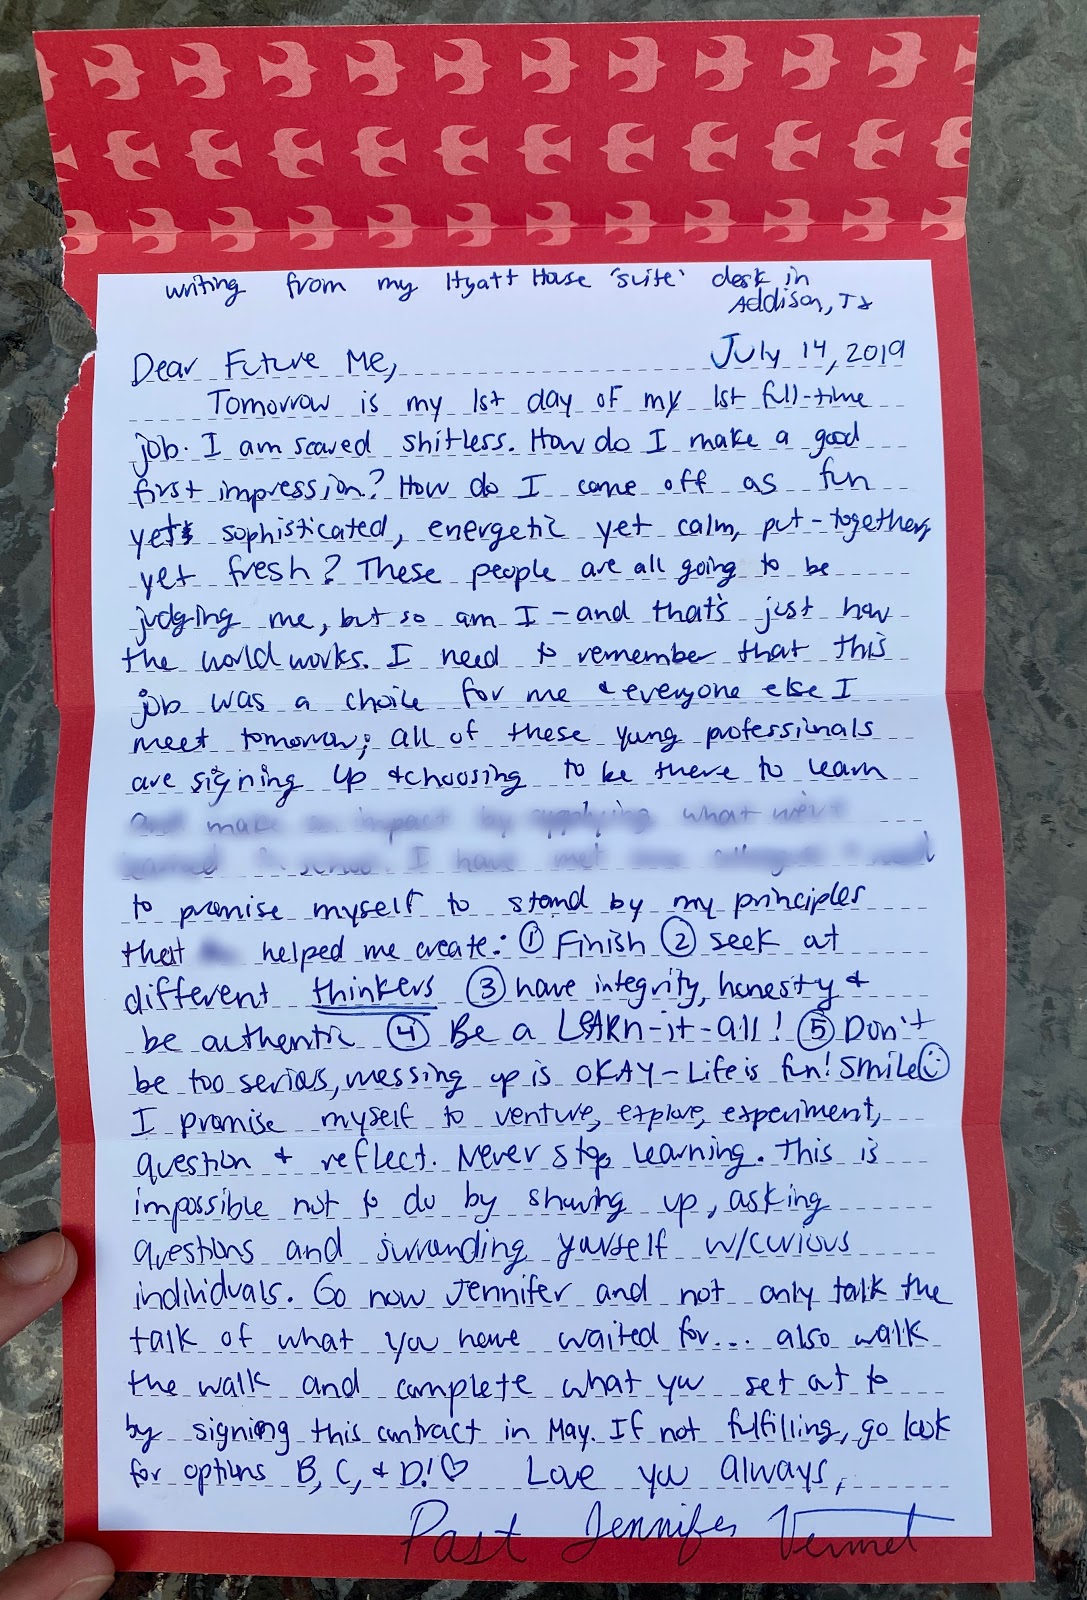 writing from my Hyatt House 'suite' desk in
Addison, TX
Dear Future Me,
July 14, 2019
Tomorrow is my 1st day of my 1st full-time
job. I am scared shitless. How do I make a good
first impression? How do I come off as fun
yet sophisticated, energetic yet calm, put-together,
yet fresh? These people are all going to be
judging me, but so am I - and that's just how
the world works. I need to remember that this
job was a choice for me & everyone else I
meet tomorrow; all of these young professionals
are signing up & choosing to be there to learn
and make an impact by applying what we've
learned in school. I have met
to promise myself to stand by my principles
that helped me create: ① Finish ② seek at
different thinkers ③ have integrity, honesty &
be authentic ④ Be a LEARn-it-all! ⑤ Don't
be too serious, messing up is OKAY - Life is fun! Smile ☺
I promise myself to venture, explore, experiment,
question & reflect. Never stop learning. This is
impossible not to do by showing up, asking
questions and surrounding yourself w/curious
individuals. Go now Jennifer and not only talk the
talk of what you have waited for... also walk
the walk and complete what you set out to
by signing this contract in May. If not fulfilling, go look
for options B, C, & D! ♡ Love you always,
Past Jennifer Vermet